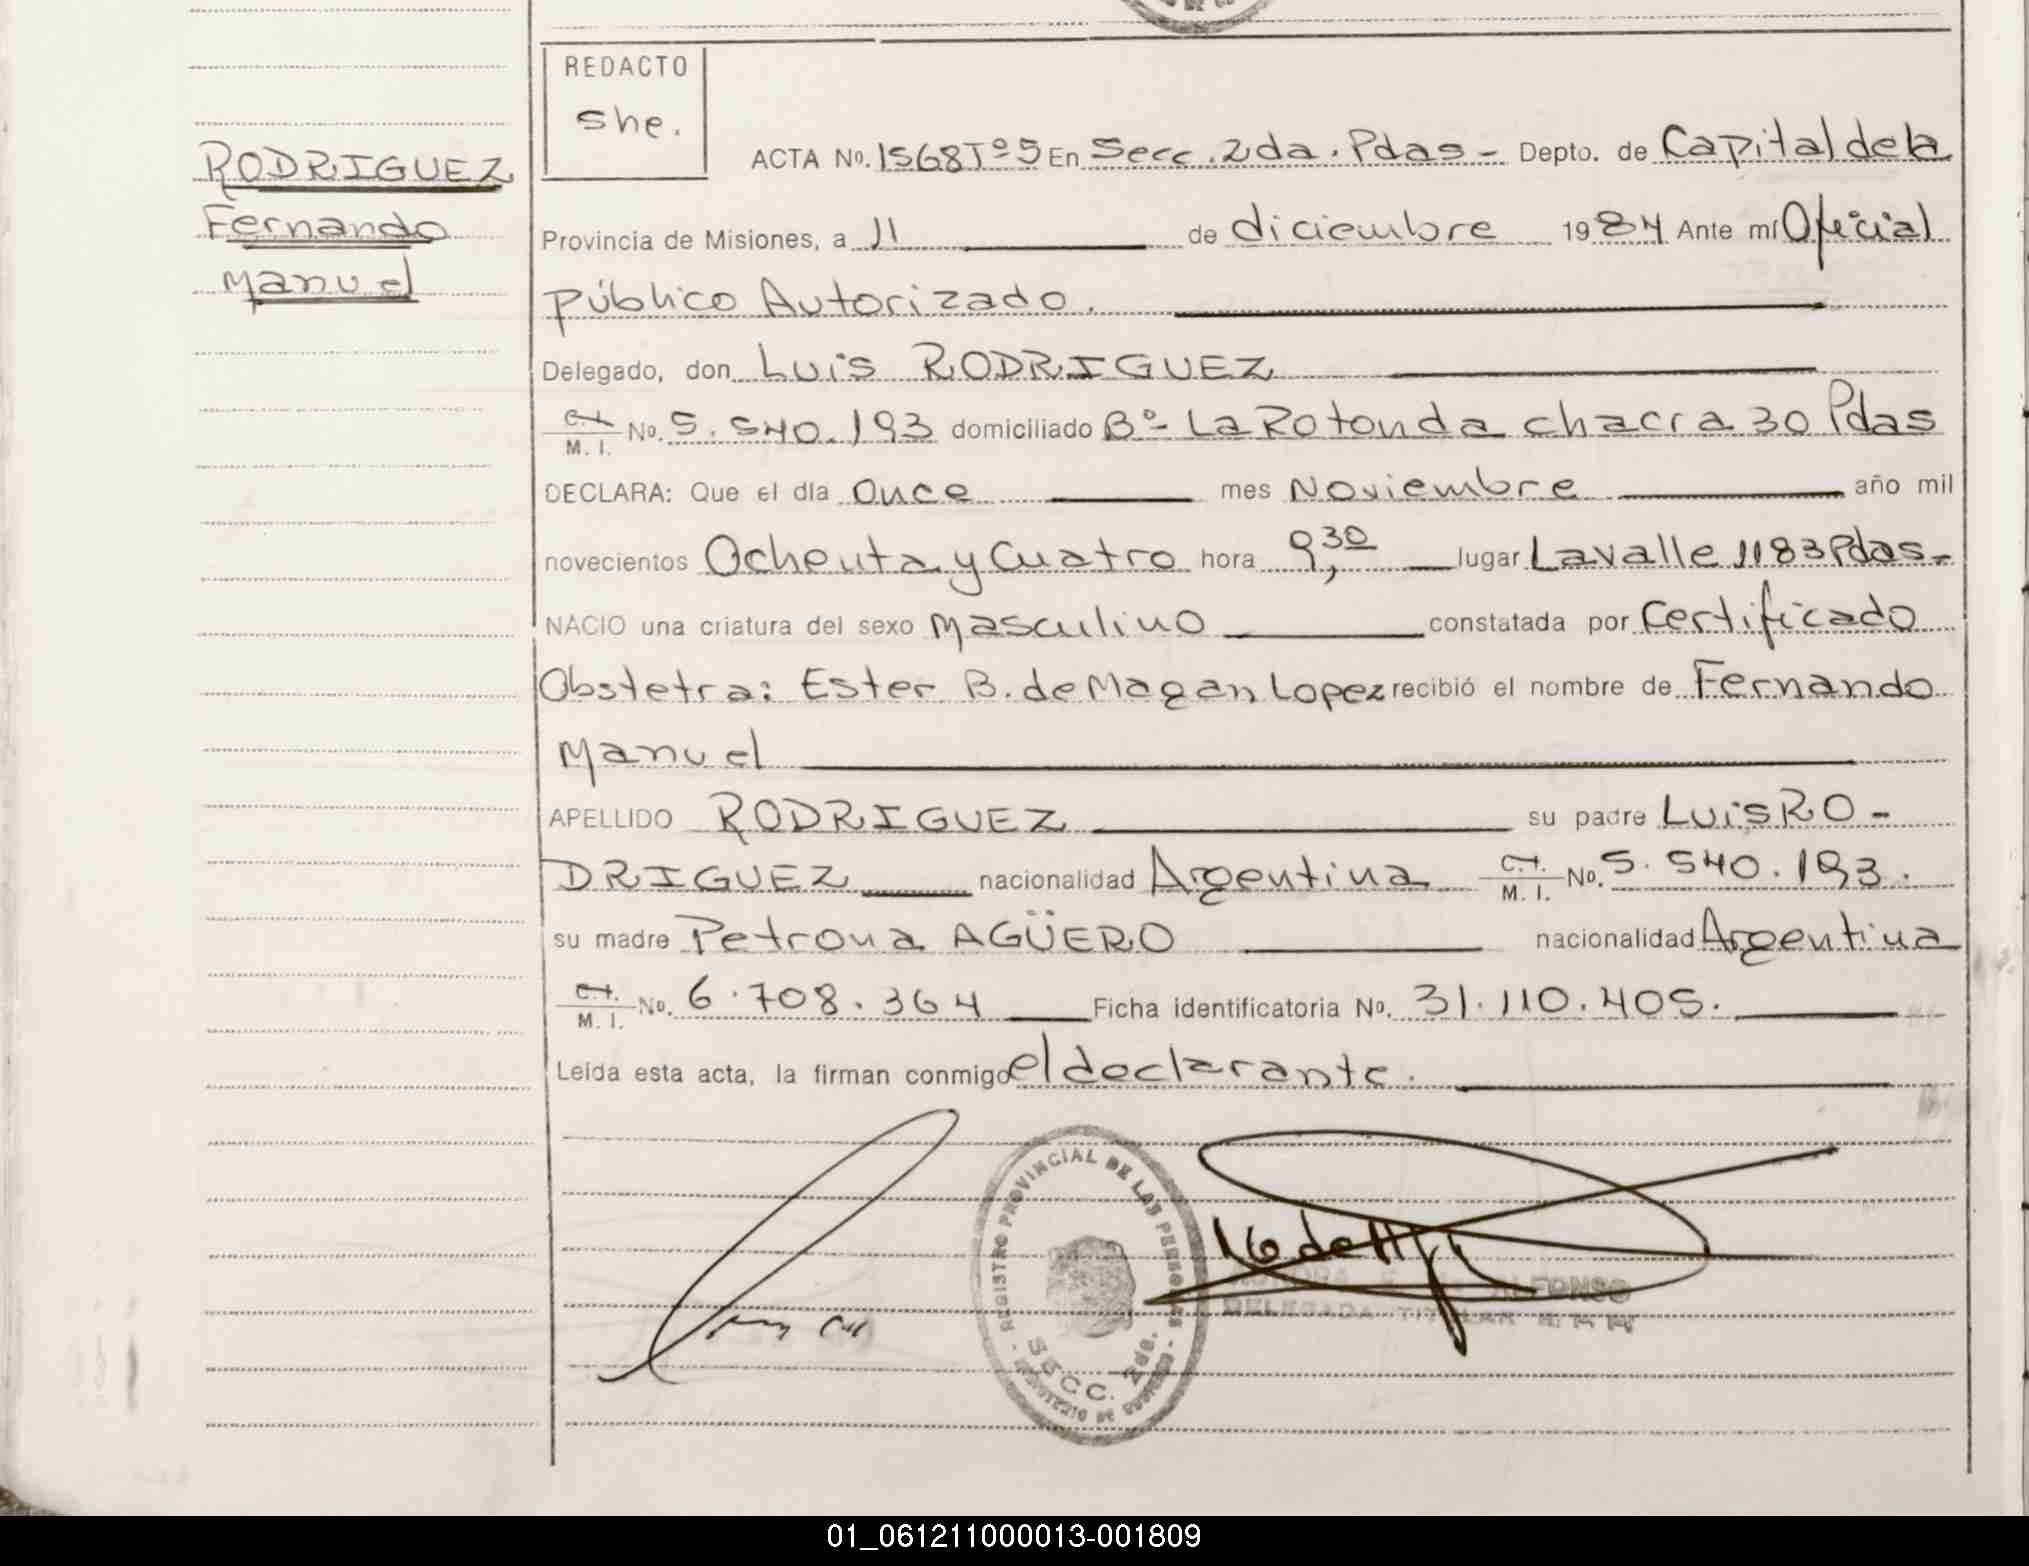 REDACTO
She.
RODRIGUEZ
Fernando
Manuel
ACTA No. 1568 Tº 5 En Secc. 2da. Pdas - Depto. de Capital de la
Provincia de Misiones, a 11 de diciembre 1984 Ante mí Oficial
Público Autorizado.
Delegado, don Luis RODRIGUEZ
C.I. M. I. No. 5.540.193 domiciliado Bº La Rotonda chacra 30 Pdas
DECLARA: Que el día Once mes Noviembre año mil
novecientos Ochenta y Cuatro hora 9,30 lugar Lavalle 1183 Pdas-
NACIO una criatura del sexo Masculino constatada por Certificado
Obstetra: Ester B. de Magan Lopez recibió el nombre de Fernando
Manuel
APELLIDO RODRIGUEZ su padre Luis RO-
DRIGUEZ nacionalidad Argentina C.I. M. I. No. 5.540.193.
su madre Petrona AGÜERO nacionalidad Argentina
C.I. M. I. No. 6.708.364 Ficha identificatoria No. 31.110.405.
Leída esta acta, la firman conmigo el declarante.
REGISTRO PROVINCIAL DE LAS PERSONAS
SECC. 2da.
ALFONSO
DELEGADA TITULAR
01_061211000013-001809